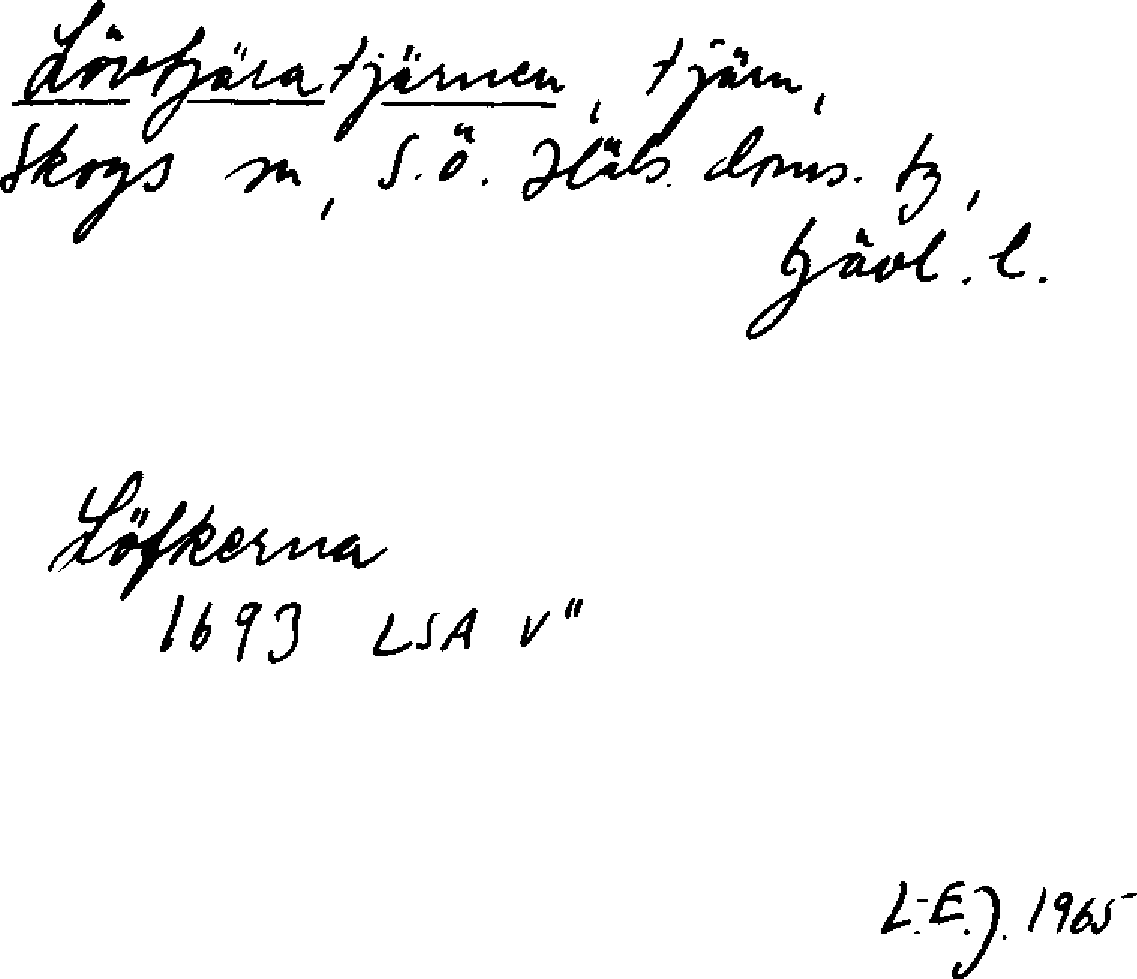 Lövtjäratjärnen, tjärn,
Skogs sn, S.ö. Häls. doms. tg,
Gävl. l.
Löfkerna
1693 LSA V"
L-E.J. 1965